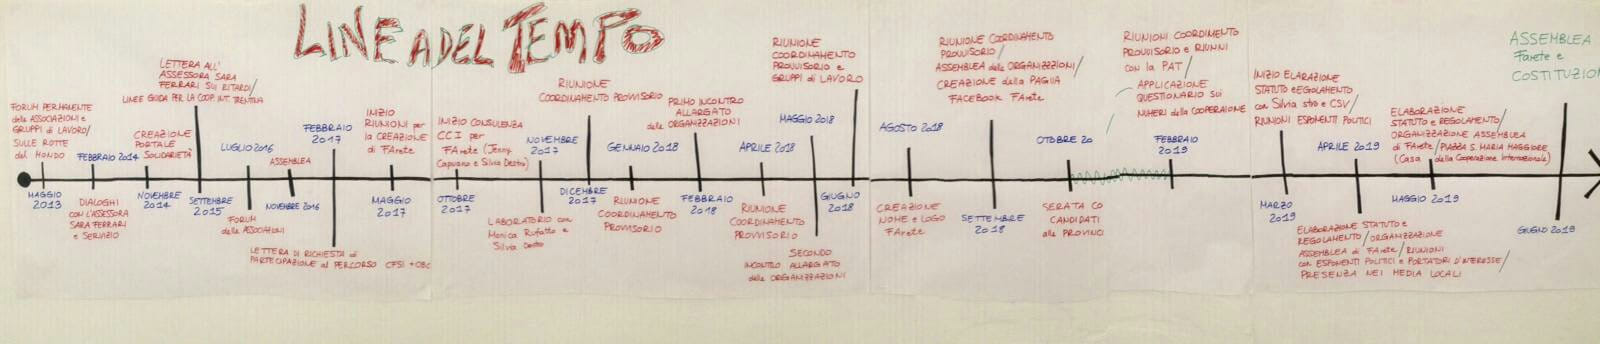 LINEA DEL TEMPO
FORUM PERMANENTE
delle ASSOCIAZIONI e
GRUPPI di LAVORO/
SULLE ROTTE
del MONDO
MAGGIO
2013
FEBBRAIO 2014
DIALOGHI
CON L'ASSESSORA
SARA FERRARI
e SERVIZIO
CREAZIONE
PORTALE
SOLIDARIETÀ
NOVEMBRE
2014
LETTERA ALL'
ASSESSORA SARA
FERRARI SUI RITARDI/
LINEE GUIDA PER LA COOP. INT. TRENTINA
SETTEMBRE
2015
LUGLIO 2016
FORUM
delle ASSOCIAZIONI
ASSEMBLEA
NOVEMBRE 2016
FEBBRAIO
2017
LETTERA DI RICHIESTA di
PARTECIPAZIONE al PERCORSO CFSI + OBC
INIZIO
RIUNIONI per
la CREAZIONE
di FArete
MAGGIO
2017
INIZIO CONSULENZA
CCI per
FArete (Jenny
Capuano e Silvia Destro)
OTTOBRE
2017
NOVEMBRE
2017
LABORATORIO con
Monica Ruffatto e
Silvia Destro
RIUNIONE
COORDINAMENTO PROVVISORIO
DICEMBRE
2017
GENNAIO 2018
RIUNIONE
COORDINAMENTO
PROVVISORIO
PRIMO INCONTRO
ALLARGATO
delle ORGANIZZAZIONI
FEBBRAIO
2018
APRILE 2018
RIUNIONE
COORDINAMENTO
PROVVISORIO
MAGGIO 2018
SECONDO
INCONTRO ALLARGATO
delle ORGANIZZAZIONI
RIUNIONE
COORDINAMENTO
PROVVISORIO e
GRUPPI di LAVORO
GIUGNO
2018
AGOSTO 2018
CREAZIONE
NOME e LOGO
FArete
RIUNIONE COORDINAMENTO
PROVVISORIO/
ASSEMBLEA delle ORGANIZZAZIONI/
CREAZIONE della PAGINA
FACEBOOK FArete
SETTEMBRE
2018
OTTOBRE 20
SERATA CO
CANDIDATI
alle PROVINCI
RIUNIONI COORDIMENTO
PROVVISORIO e RIUNNI
CON la PAT/
APPLICAZIONE
QUESTIONARIO SUI
NUMERI della COOPERAIONE
FEBBRAIO
2019
INIZIO ELARAZIONE
STATUTO e EGOLAMENTO
con Silvia stro e CSV/
RIUNIONI ESPONENTI POLITICI
MARZO
2019
APRILE 2019
ELABORAZIONE STATUTO e
REGOLAMENTO/ORGANIZZAZIONE
ASSEMBLEA di FArete/RIUNIONI
con ESPONENTI POLITICI e PORTATORI D'INTERESSE/
PRESENZA NEI MEDIA LOCALI
ELABORAZIONE
STATUTO e REGOLAMENTO/
ORGANIZZAZIONE ASSEMBLEA
di FArete/PIAZZA S. MARIA MAGGIORE
(Casa della Cooperazione Internazionale)
MAGGIO 2019
ASSEMBLEA
Farete e
COSTITUZION
GIUGNO 2019